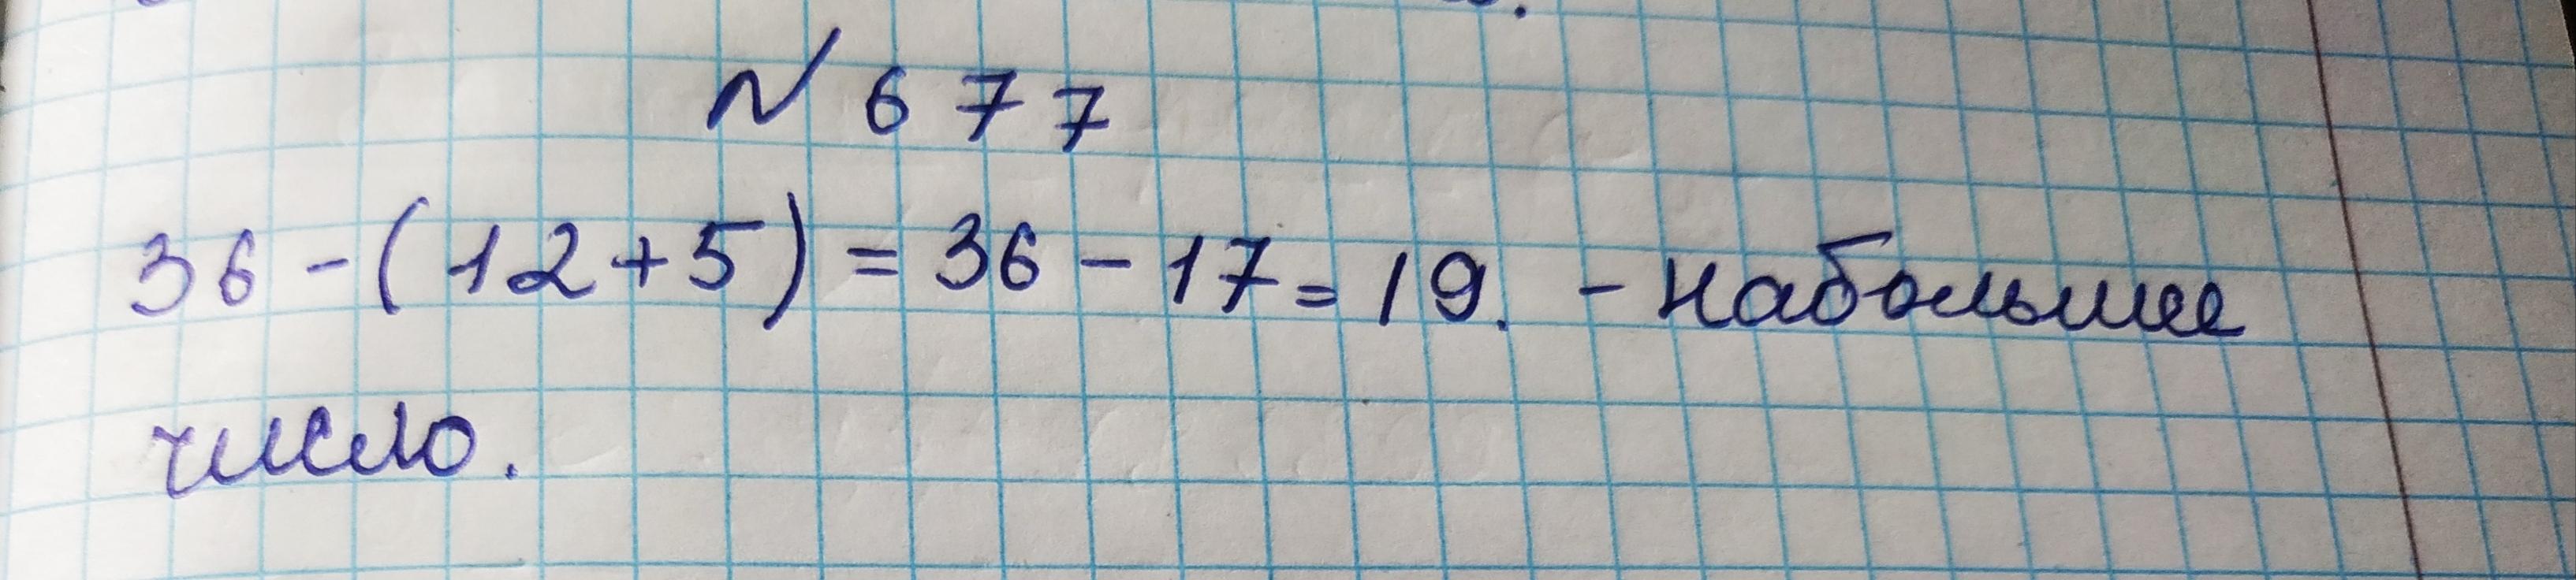 № 677
36 - (12 + 5) = 36 - 17 = 19. - набольшее
число.